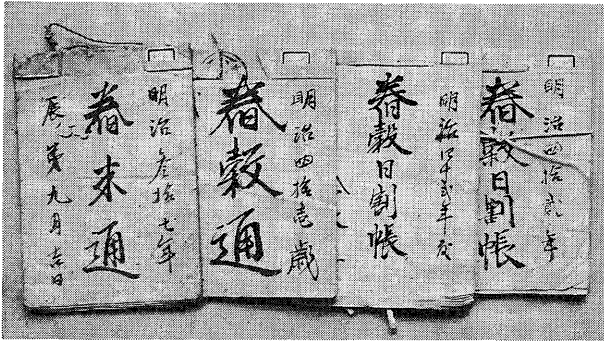 明治四拾貳年
舂穀日割帳
明治四十貳年度
舂穀日割帳
明治四拾壱歳
舂穀通
明治参拾七年
舂米通
辰ノ第九月吉日